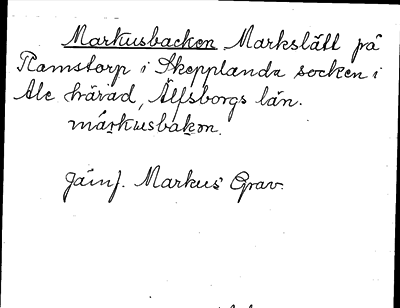 Markusbacken Markslätt på
Ramstorp i Skepplanda socken i
Ale härad, Älfsborgs län.
márkusbakon.
Jämf. Markus' Grav.